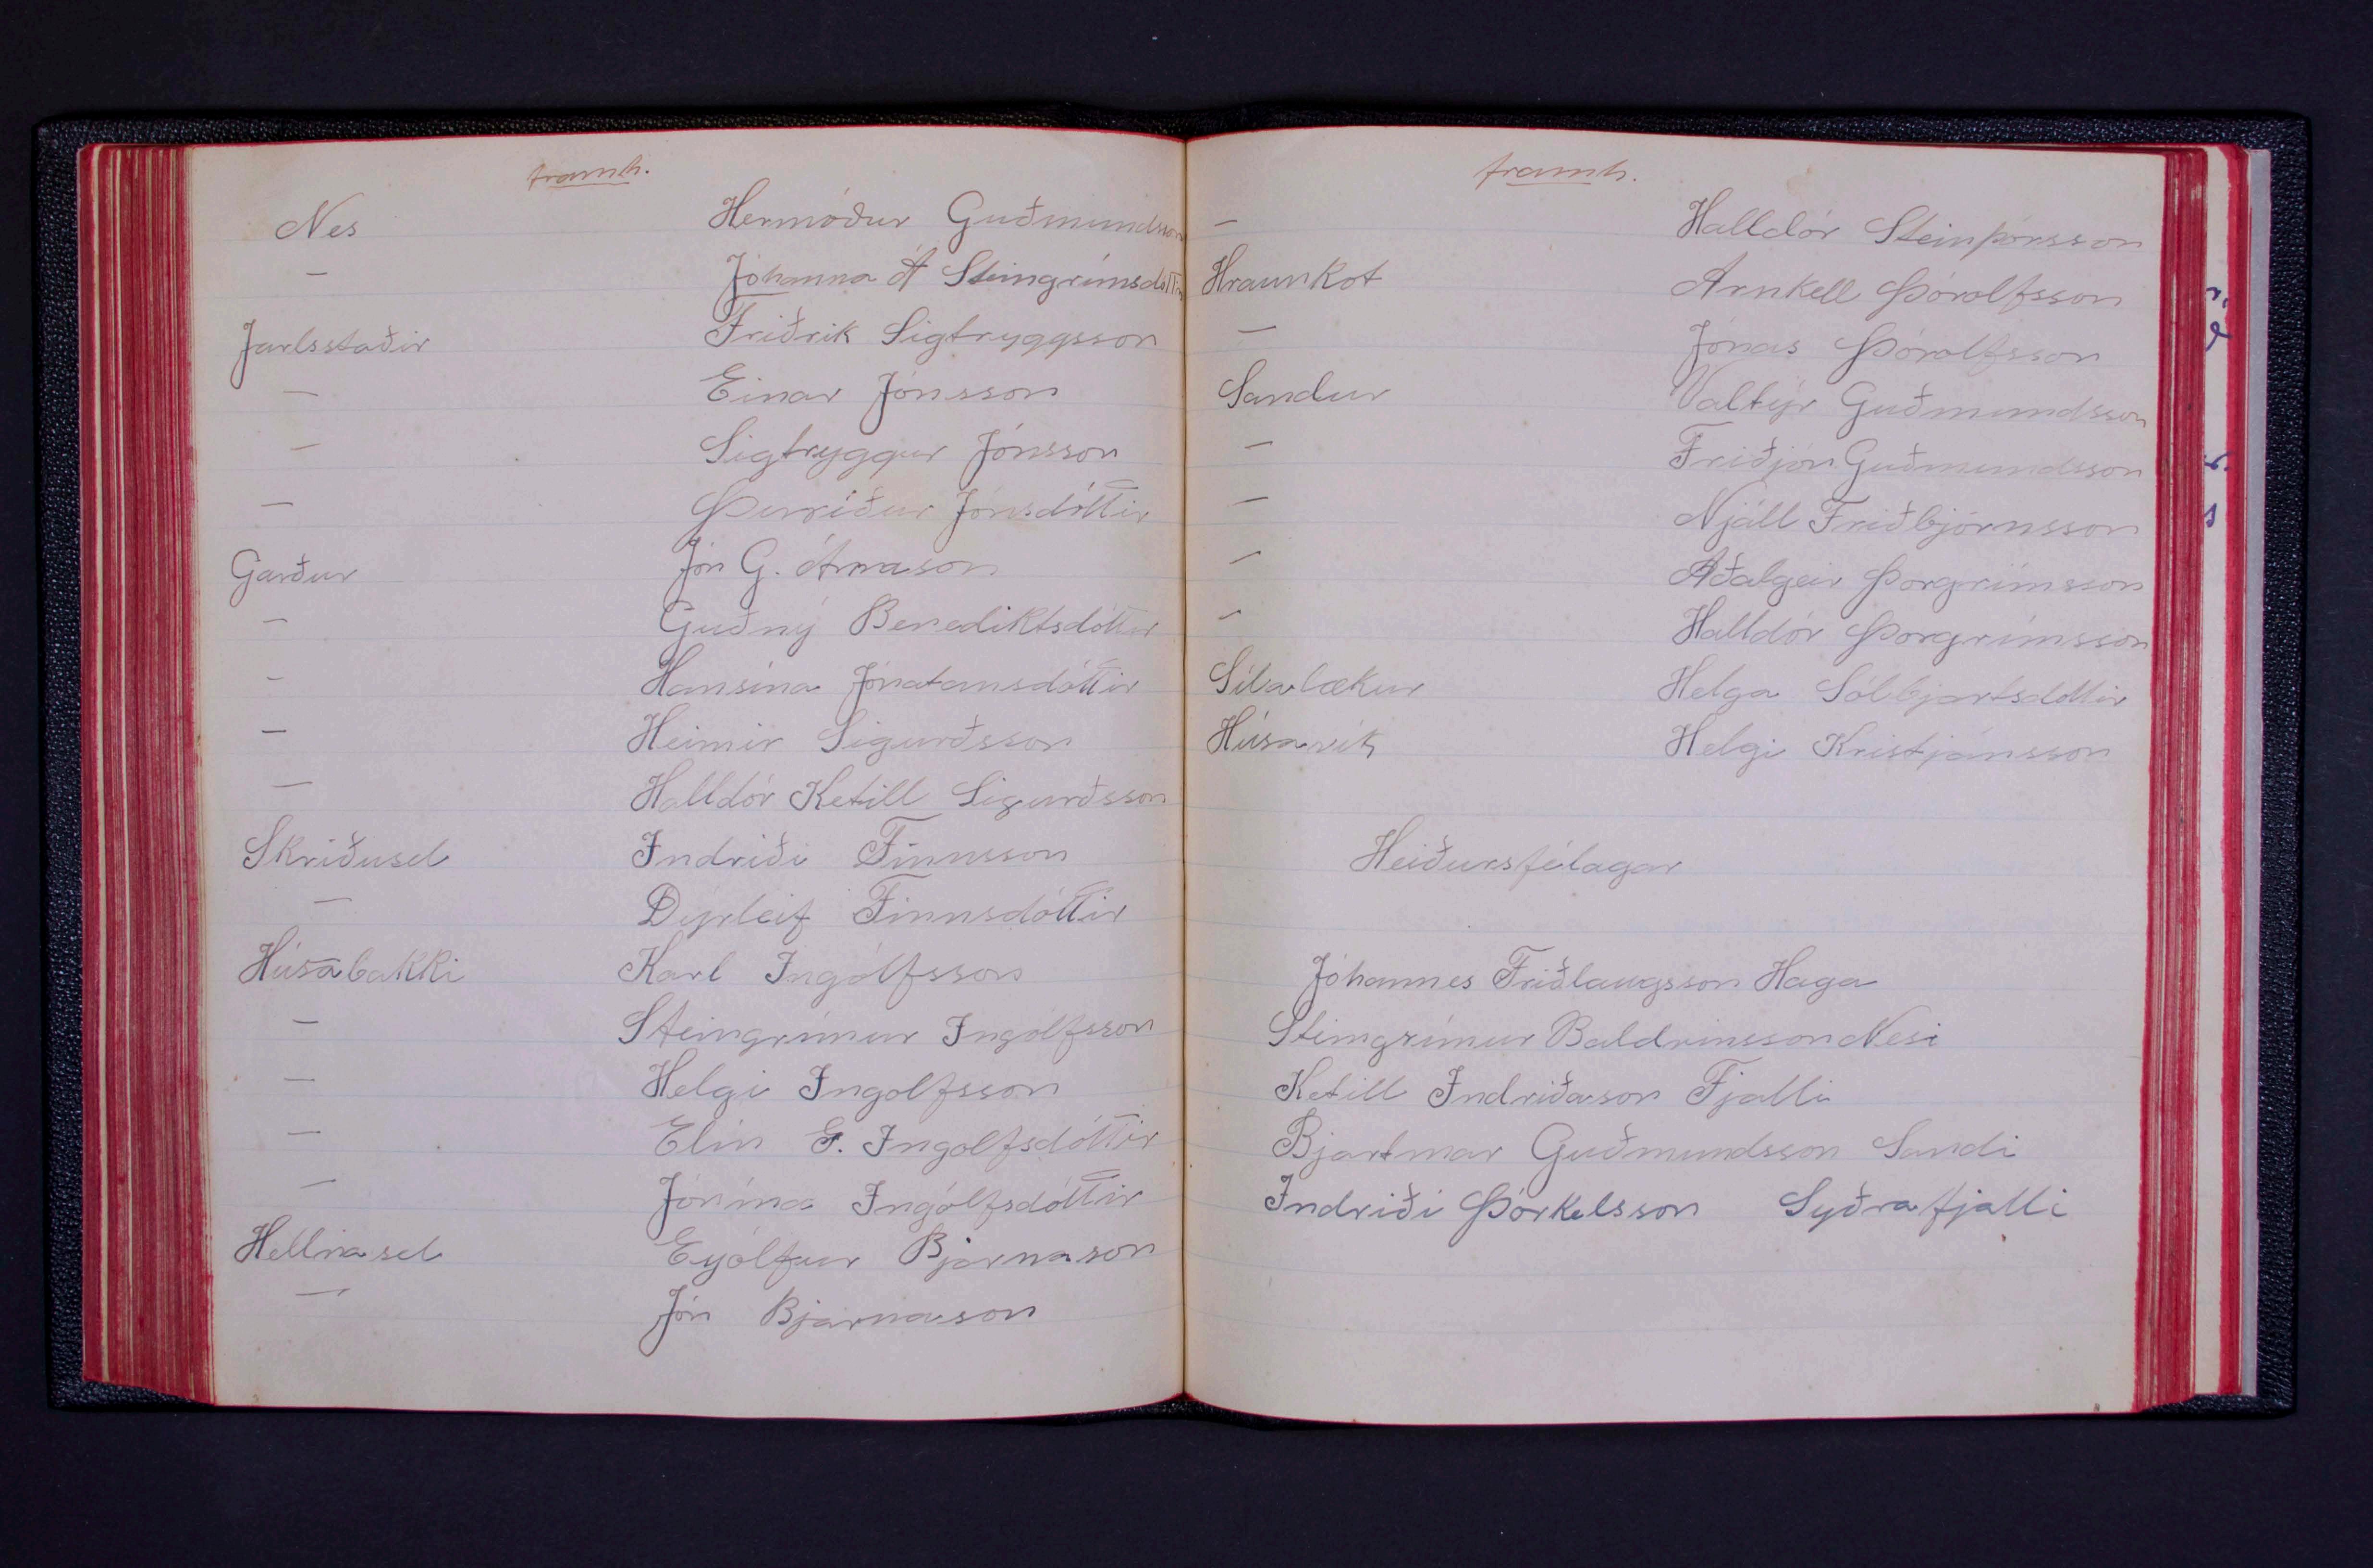 framh.
Nes Hermóður Guðmundsson
— Jóhanna Á Steingrímsdóttir
Jarlsstaðir Friðrik Sigtryggsson
— Einar Jónsson
— Sigtryggur Jónsson
— Þuríður Jónsdóttir
Garður Jón G. Árnason
— Guðný Benediktsdóttir
— Hansína Jónatansdóttir
— Heimir Sigurðsson
— Halldór Ketill Sigurðsson
Skriðusel Indriði Finnsson
— Dýrleif Finnsdóttir
Húsabakki Karl Ingólfsson
— Steingrímur Ingólfsson
— Helgi Ingolfsson
— Elín G. Ingolfsdóttir
— Jónína Ingólfsdóttir
Hellnasel Eyólfur Bjarnason
— Jón Bjarnason
framh.
— Halldór Steinþórsson
Hraunkot Arnkell Þórolfsson
— Jónas Þórolfsson
Sandur Valtýr Guðmundsson
— Friðjón Guðmundsson
— Njáll Friðbjörnsson
— Aðalgeir Þorgrímsson
— Halldór Þorgrímsson
Sílalækur Helga Sólbjartsdóttir
Húsavík Helgi Kristjánsson
Heiðursfélagar
Jóhannes Friðlaugsson Haga
Steingrímur Baldvinsson Nesi
Ketill Indriðason Fjalli
Bjartmar Guðmundsson Sandi
Indriði Þórkelsson Syðrafjalli